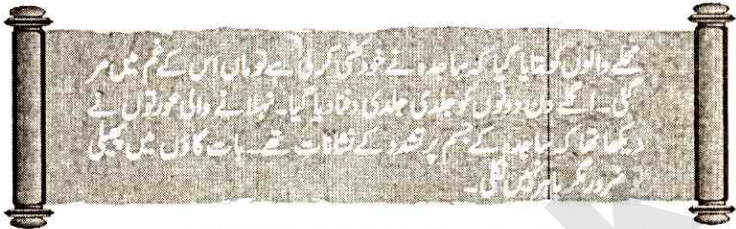 محلے والوں کو بتایا گیا کہ ساجدہ نے خودکشی کر لی ہے تو ماں اس کے غم میں مر
گئی۔ اگلے دن دونوں کو جلدی جلدی دفنا دیا گیا۔ نہلانے والی عورتوں نے
دیکھا تھا کہ ساجدہ کے جسم پر تشدد کے نشانات تھے۔ بات گاؤں میں پھیلی
تو ضرور مگر باہر نہیں نکلی۔